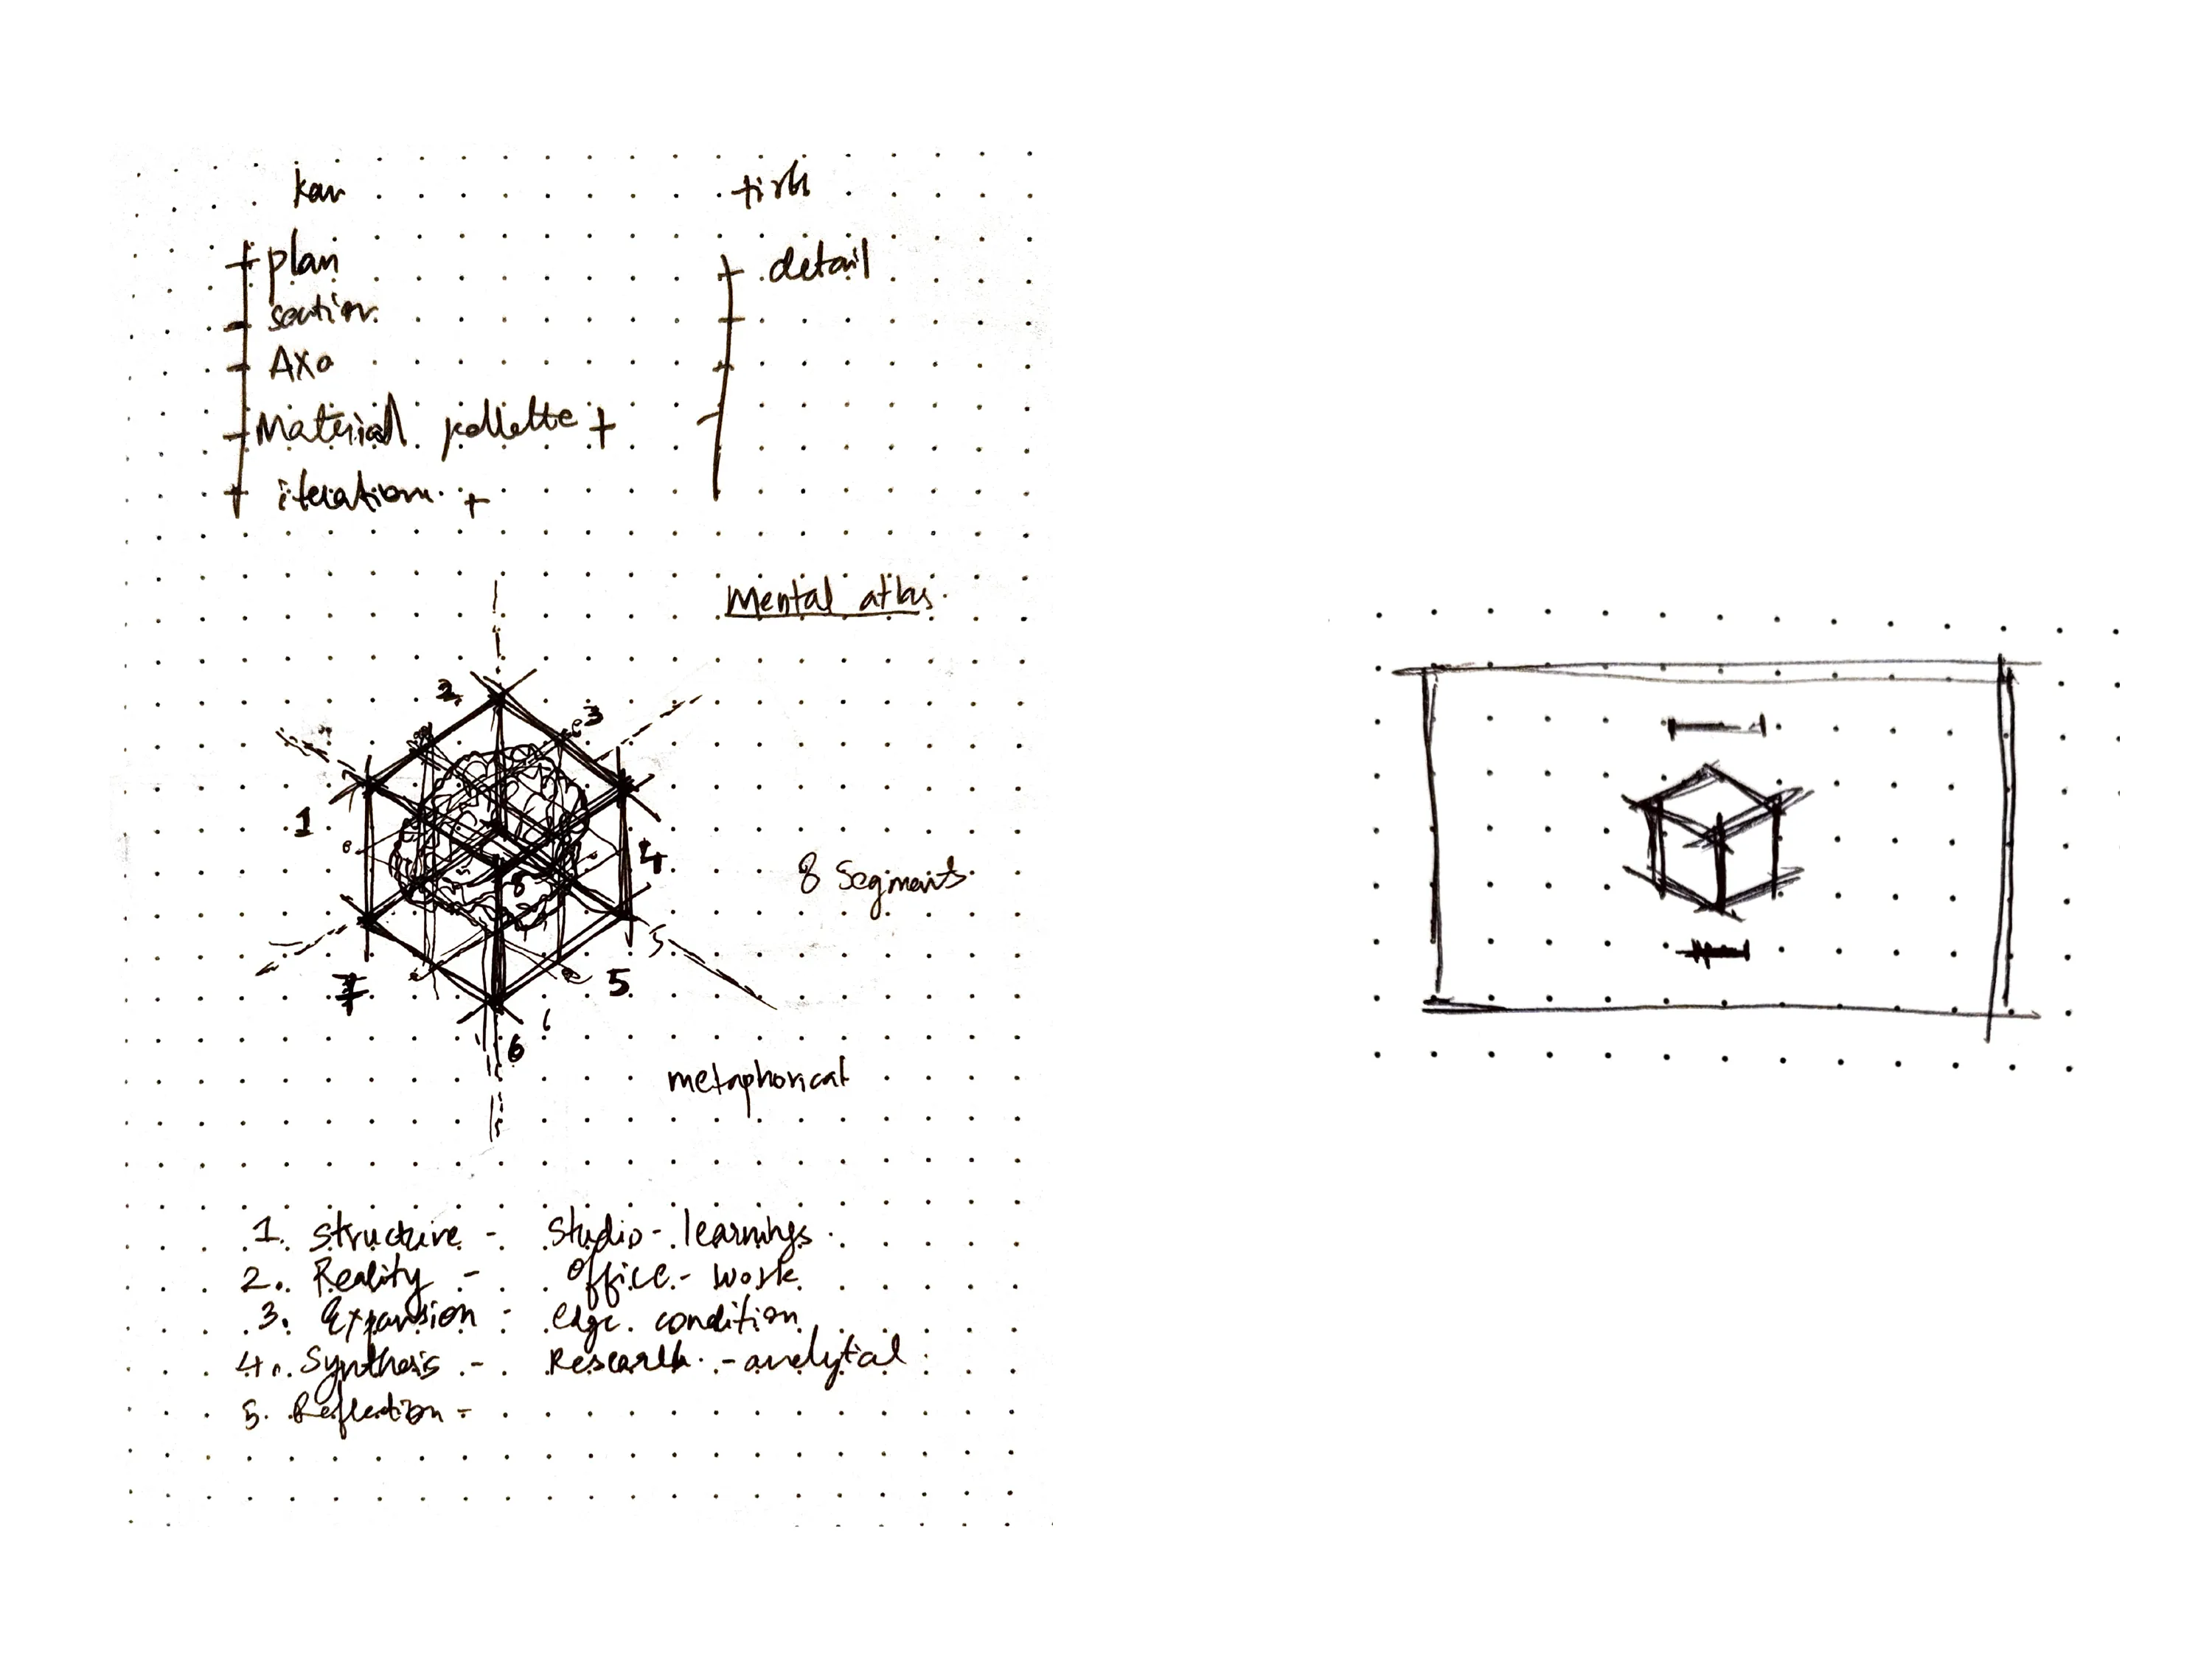 kar
plan
section
Axo
Material pallette +
iteration +
detail
Mental atlas
2
3
1
4
8
8 Segments
5
7
5
6
metaphorical
1. Structure - Studio - learnings
2. Reality - office - work
3. Expansion - edge condition
4. Synthesis - Research - analytical
5. Reflection -